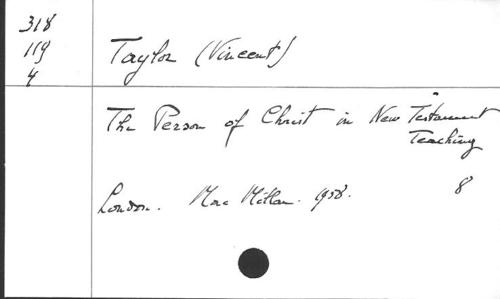 318
119
4
Taylor (Vincent)
The Person of Christ in New Testament
Teaching
London. Mac Millan. 1958. 8